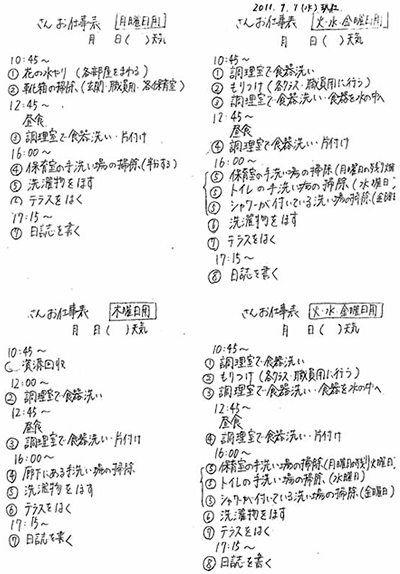 さんお仕事表 月曜日用
月 日( )天気
10:45～
① 花の水やり (各部屋をまわる)
② 靴箱の掃除、(玄関・職員用・各保育室)
12:45～
昼食
③ 調理室で食器洗い・片付け
16:00～
④ 保育室の手洗い場の掃除(半分する)
⑤ 洗濯物をほす
⑥ テラスをはく
17:15～
⑦ 日誌を書く
2011.7.7(木)現在
さんお仕事表 火・水・金曜日用
月 日( )天気
10:45～
① 調理室で食器洗い
② もりつけ(各クラス・職員用に行う)
③ 調理室で食器洗い・食器を水の中へ
12:45～
昼食
④ 調理室で食器洗い・片付け
16:00～
⑤ 保育室の手洗い場の掃除(月曜日の残り)火曜
⑤ トイレの手洗い場の掃除(水曜日)
⑤ シャワーが付いている洗い場の掃除(金曜日
⑥ 洗濯物をほす
⑦ テラスをはく
17:15～
⑧ 日誌を書く
さんお仕事表 木曜日用
月 日( )天気
10:45～
資源回収
12:00～
② 調理室で食器洗い
12:45～
昼食
③ 調理室で食器洗い・片付け
16:00～
④ 廊下にある手洗い場の掃除
⑤ 洗濯物をほす
⑥ テラスをはく
17:15～
⑦ 日誌を書く
さんお仕事表 火・水・金曜日用
月 日( )天気
10:45～
① 調理室で食器洗い
② もりつけ(各クラス・職員用に行う)
③ 調理室で食器洗い・食器を水の中へ
12:45～
昼食
④ 調理室で食器洗い・片付け
16:00～
⑤ 保育室の手洗い場の掃除(月曜日の残り)火曜日
⑤ トイレの手洗い場の掃除(水曜日)
⑤ シャワーが付いている洗い場の掃除(金曜日)
⑥ 洗濯物をほす
⑦ テラスをはく
17:15～
⑧ 日誌を書く